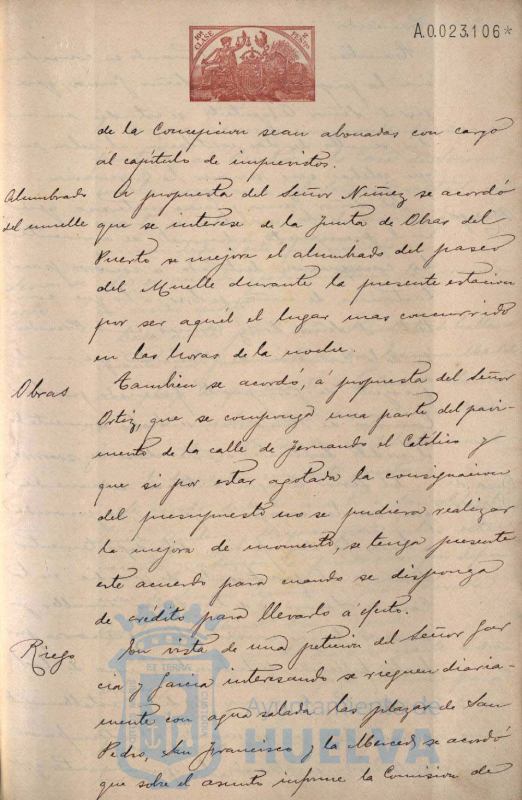 10ª CLASE
A.0.023.106*
de la Concepcion sean abonadas con cargo
al capítulo de imprevistos.
Alumbrado
del muelle
A propuesta del Señor Nuñez se acordó
que se interese de la Junta de Obras del
Puerto se mejore el alumbrado del paseo
del Muelle durante la presente estacion
por ser aquél el lugar mas concurrido
en las horas de la noche.
Obras
Tambien se acordó, á propuesta del Señor
Ortiz, que se componga una parte del pavi-
mento de la calle de Fernando el Católico y
que si por estar agotada la consignacion
del presupuesto no se pudiera realizar
la mejora de momento, se tenga presente
este acuerdo para cuando se disponga
de crédito para llevarlo á efecto.
Riego
En vista de una peticion del Señor Gar
cia y Garcia interesando se rieguen diaria-
mente con agua salada las plazas de San
Pedro, San Francisco y la Merced, se acordó
que sobre el asunto informe la Comision de
Ayuntamiento de
HUELVA